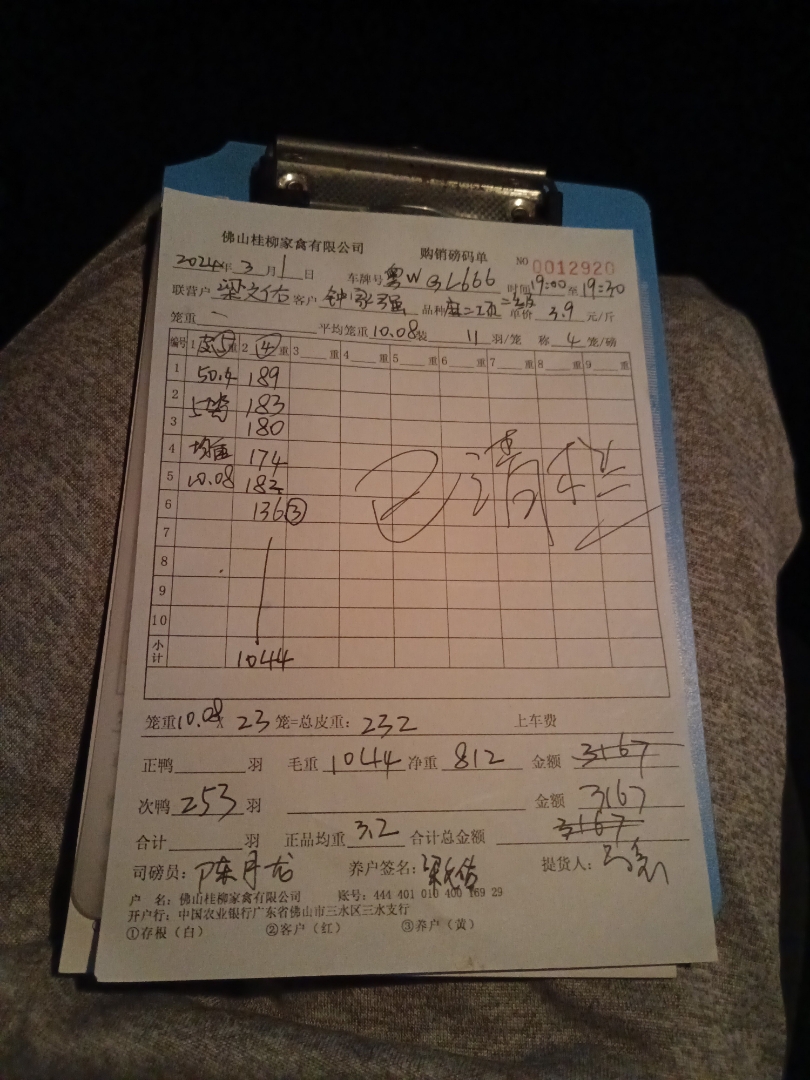 佛山桂柳家禽有限公司 购销磅码单 NO 0012920
2024年3月1日 车牌号 粤W GL666 时间19:00至19:30
联营户 梁文佑 客户 钟家强 品种 二级 单价 3.9 元/斤
笼重 平均笼重10.08装 11 羽/笼 称 4 笼/磅
编号 1 皮⑤重 2 ④重 3 重 4 重 5 重 6 重 7 重 8 重 9 重
1 50.4 189
2 5笼 183
3 180
4 均重 174
5 10.08 182
6 136③
7
8
9
10
小计 1044
已清栏
笼重10.08x 23 笼=总皮重: 232 上车费
正鸭 羽 毛重 1044 净重 812 金额 3167
次鸭 253 羽 金额 3167
合计 羽 正品均重 3.2 合计总金额 3167
司磅员: 陈月龙 养户签名: 提货人:
户 名: 佛山桂柳家禽有限公司 账号: 444 401 010 400 169 29
开户行: 中国农业银行广东省佛山市三水区三水支行
①存根(白) ②客户(红) ③养户(黄)